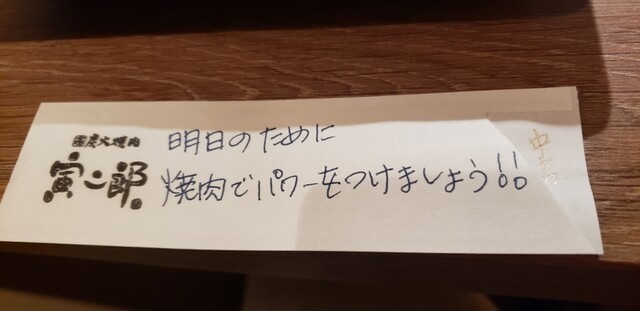 炭火焼肉
寅二郎
明日のために
焼肉でパワーをつけましょう!!